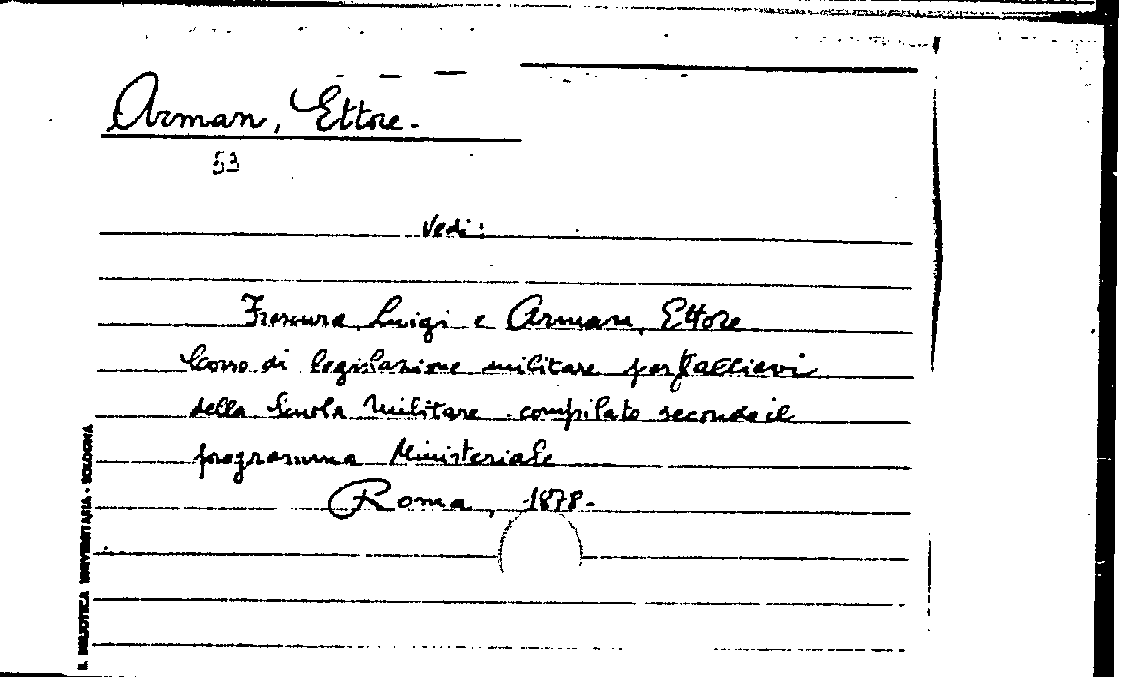 Arman, Ettore.
53
Vedi:
Frescura Luigi e Arman, Ettore
Corso di legislazione militare per gl'allievi
della Scuola Militare compilato secondo il
programma Ministeriale
Roma, 1878.
B. BIBLIOTECA UNIVERSITARIA - BOLOGNA